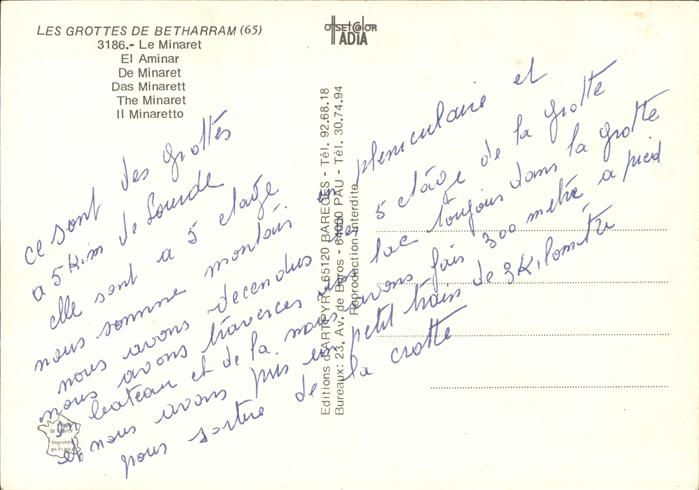 LES GROTTES DE BETHARRAM (65)
3186.- Le Minaret
El Aminar
De Minaret
Das Minarett
The Minaret
Il Minaretto
offset color
ADIA
Editions d'ART PYR - 65120 BAREGES - Tél. 92.68.18
Bureaux: 23, Av. de Buros - 64000 PAU - Tél. 30.74.94
Reproduction interdite
ce sont des grottes
a 5 kim de Lourde
elle sont a 5 etage
nous somme montais en pleniculaire et
nous avons decendus les 5 etage de la grotte
nous avons traversés un lac toujours dans la grotte
en bateau et de la nous avons fais 300 metre a pied
et nous avons pris un petit train de 3 kilomètre
pour sortire de la crotte